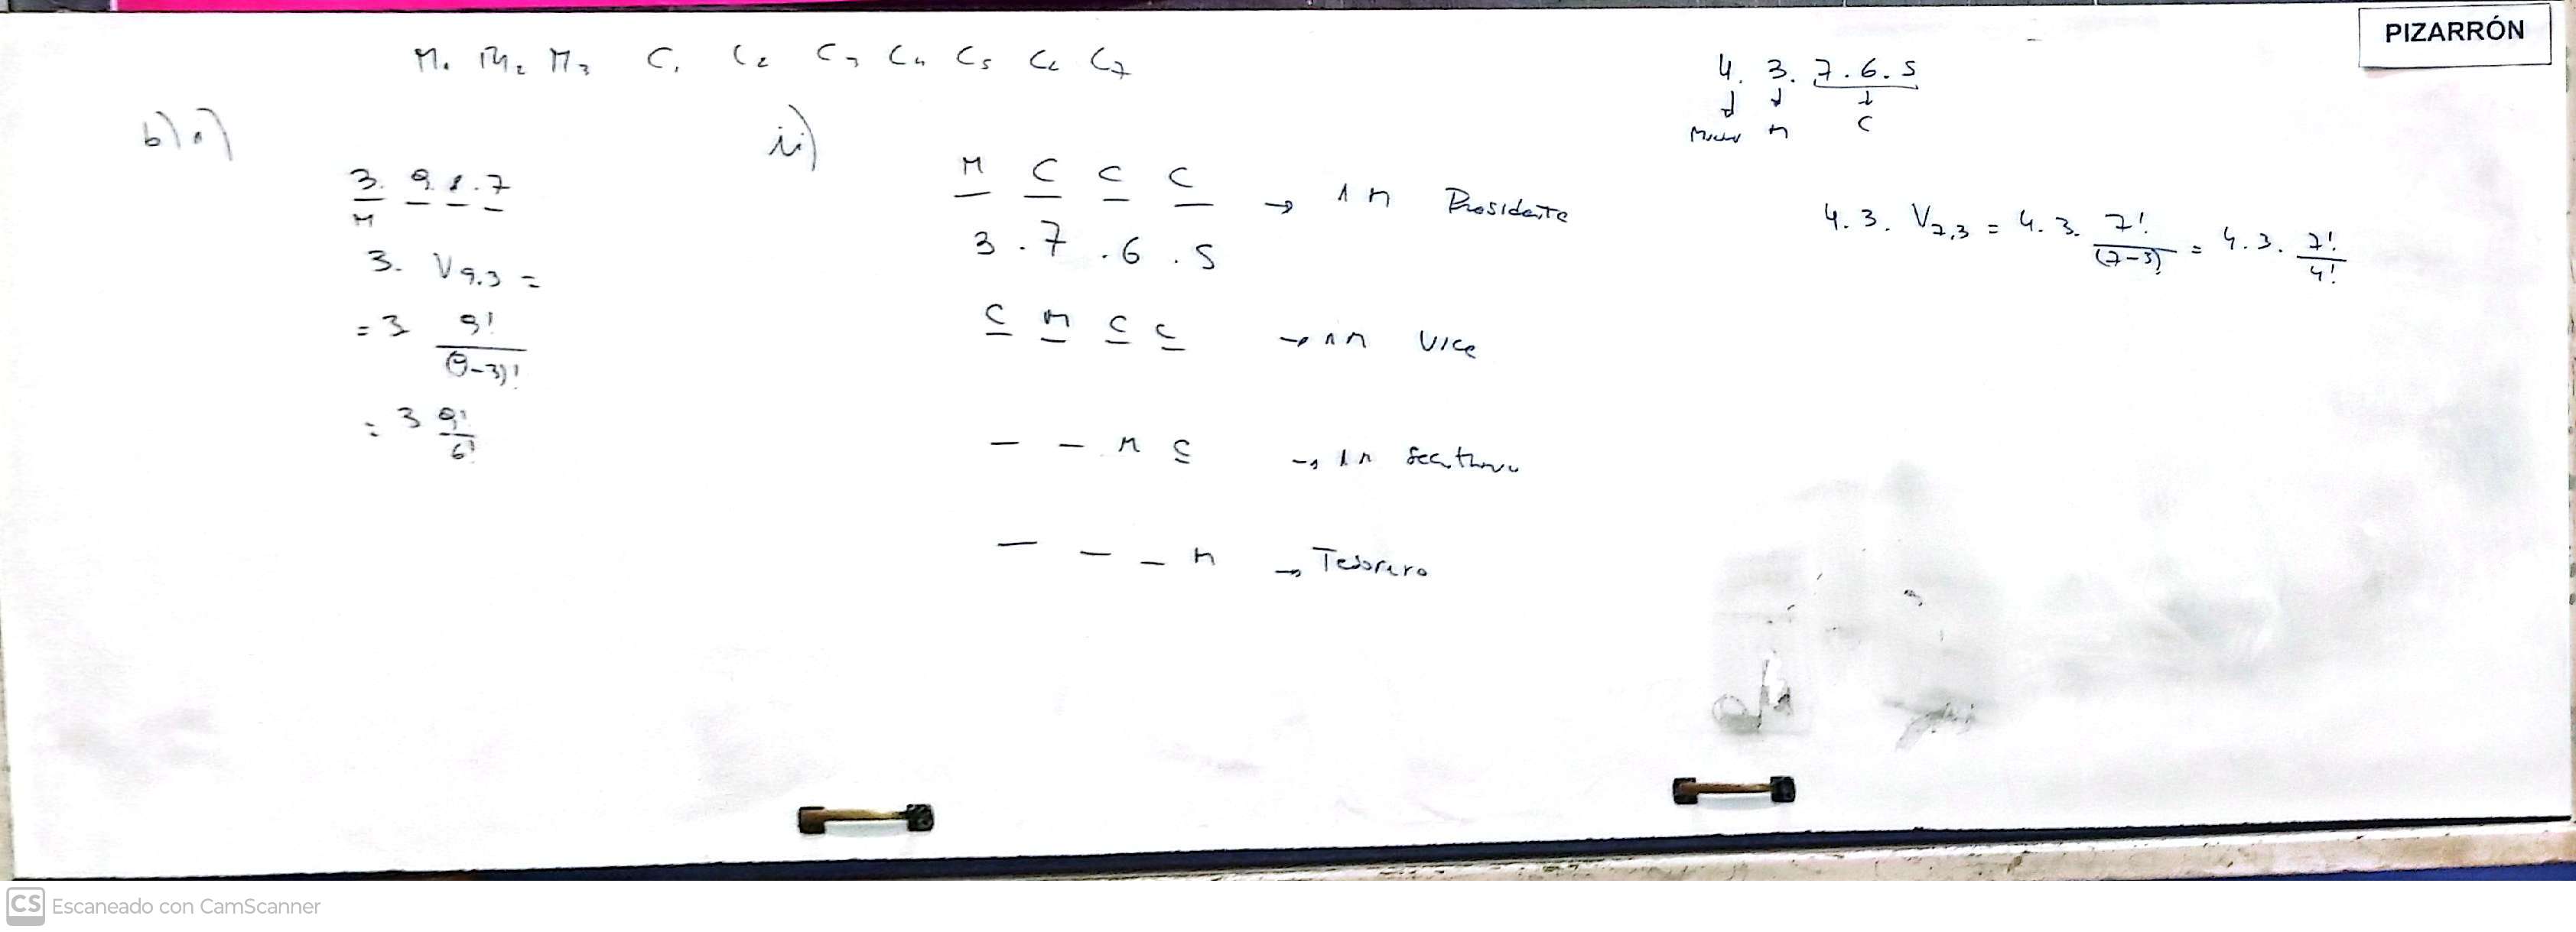 PIZARRÓN
M1 M2 M3 C1 C2 C3 C4 C5 C6 C7
b) i)
3. 9. 8. 7
M
3. V9,3 =
= 3 9! / (9-3)!
= 3 9! / 6!
ii)
M C C C → 1 M Presidente
3 . 7 . 6 . 5
C M C C → 1 M Vice
_ _ M C → 1 M
_ _ _ M → Tesorero
4. 3. 7. 6. 5
↓ ↓ ↓
M C
4. 3. V7,3 = 4. 3. 7! / (7-3)! = 4. 3. 7! / 4!
CS Escaneado con CamScanner